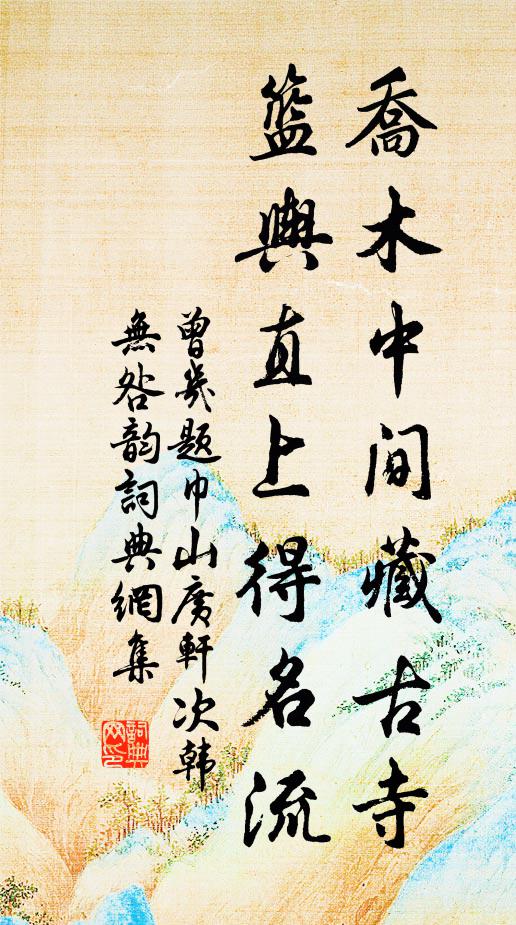 喬木中間藏古寺
籃輿直上得名流
曾幾題巾山廣軒次韩
無咎韵詞典網集
詞典网印